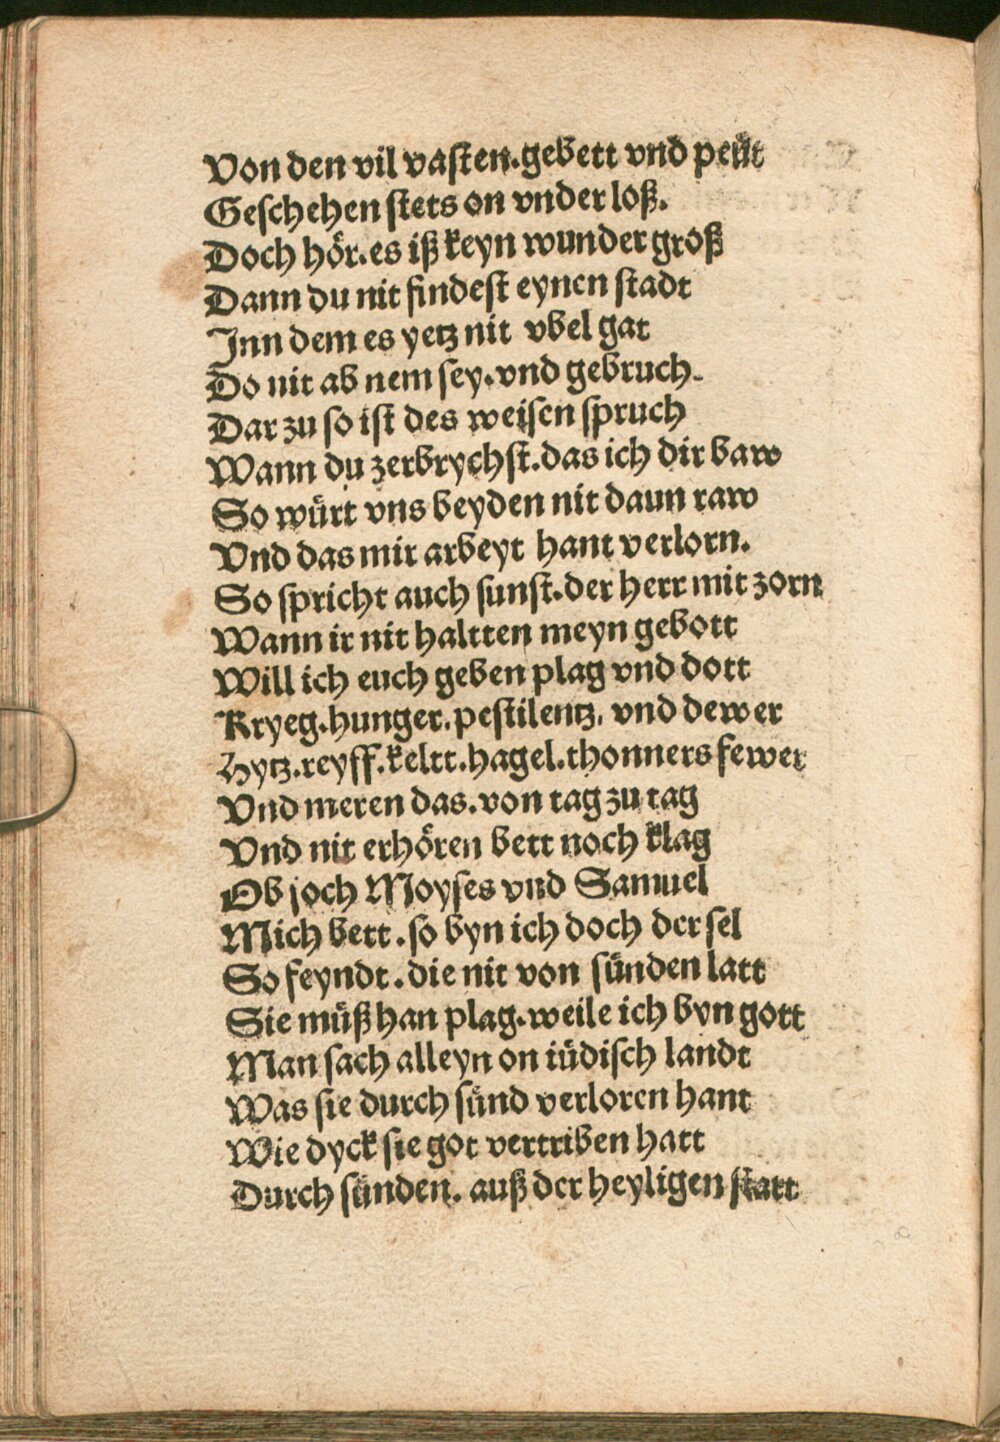 Von den vil vasten.gebett vnd peüt
Geschehen stets on vnder loß.
Doch hör.es iß keyn wunder groß
Dann du nit findest eynen stadt
Inn dem es yetz nit vbel gat
Do nit ab nem sey.vnd gebruch.
Dar zu so ist des weisen spruch
Wann du zerbrychst.das ich dir baw
So würt vns beyden nit daun raw
Vnd das mir arbeyt hant verlorn.
So spricht auch sunst.der herr mit zorn
Wann ir nit haltten meyn gebott
Will ich euch geben plag vnd dott
Kryeg.hunger.pestilentz. vnd dewer
Hytz.reyff.keltt.hagel.thonners fewer
Vnd meren das.von tag zu tag
Vnd nit erhören bett noch klag
Ob joch Moyses vnd Samuel
Mich bett.so byn ich doch der sel
So feyndt.die nit von sünden latt
Sie müß han plag.weile ich byn gott
Man sach alleyn on iüdisch landt
Was sie durch sünd verloren hant
Wie dyck sie got vertriben hatt
Durch sünden. auß der heyligen statt